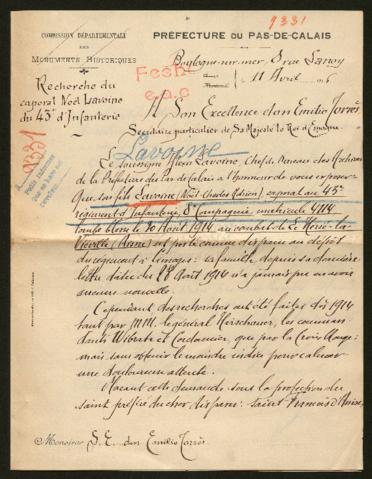 9331
COMMISSION DÉPARTEMENTALE
DES
MONUMENTS HISTORIQUES
PRÉFECTURE DU PAS-DE-CALAIS
Boulogne-sur-mer, 8 rue Lanoy
11 Avril
Fech
e.a.c
Recherche du
caporal Noël Lavoine
du 43e d'Infanterie
9331
A Son Excellence don Emilio Torrès
Secrétaire particulier de Sa Majesté le Roi d'Espagne
Lavoine
Le soussigné Henri Lavoine, Chef de Bureau des Archives
de la Préfecture du Pas de Calais a l'honneur de vous exposer
que son fils Lavoine (Noël Charles Adrien) caporal au 43e
régiment d'Infanterie, 8e Compagnie, matricule 4114
tombé blessé le 30 Août 1914 au combat de
est porté comme disparu au dépôt
du régiment à Limoges: sa famille, depuis sa dernière
lettre datée du 28 Août 1914 n'a jamais pu en avoir
aucune nouvelle.
Cependant des recherches ont été faites dès 1914
tant par MM. le général Hirschauer, les comman-
dants et que par la Croix-Rouge;
mais sans obtenir le moindre indice pour calmer
une douloureuse attente.
Plaçant cette demande sous la protection du
saint préféré du cher disparu: saint François d'Assise,
Monsieur S. E. don Emilio Torrès